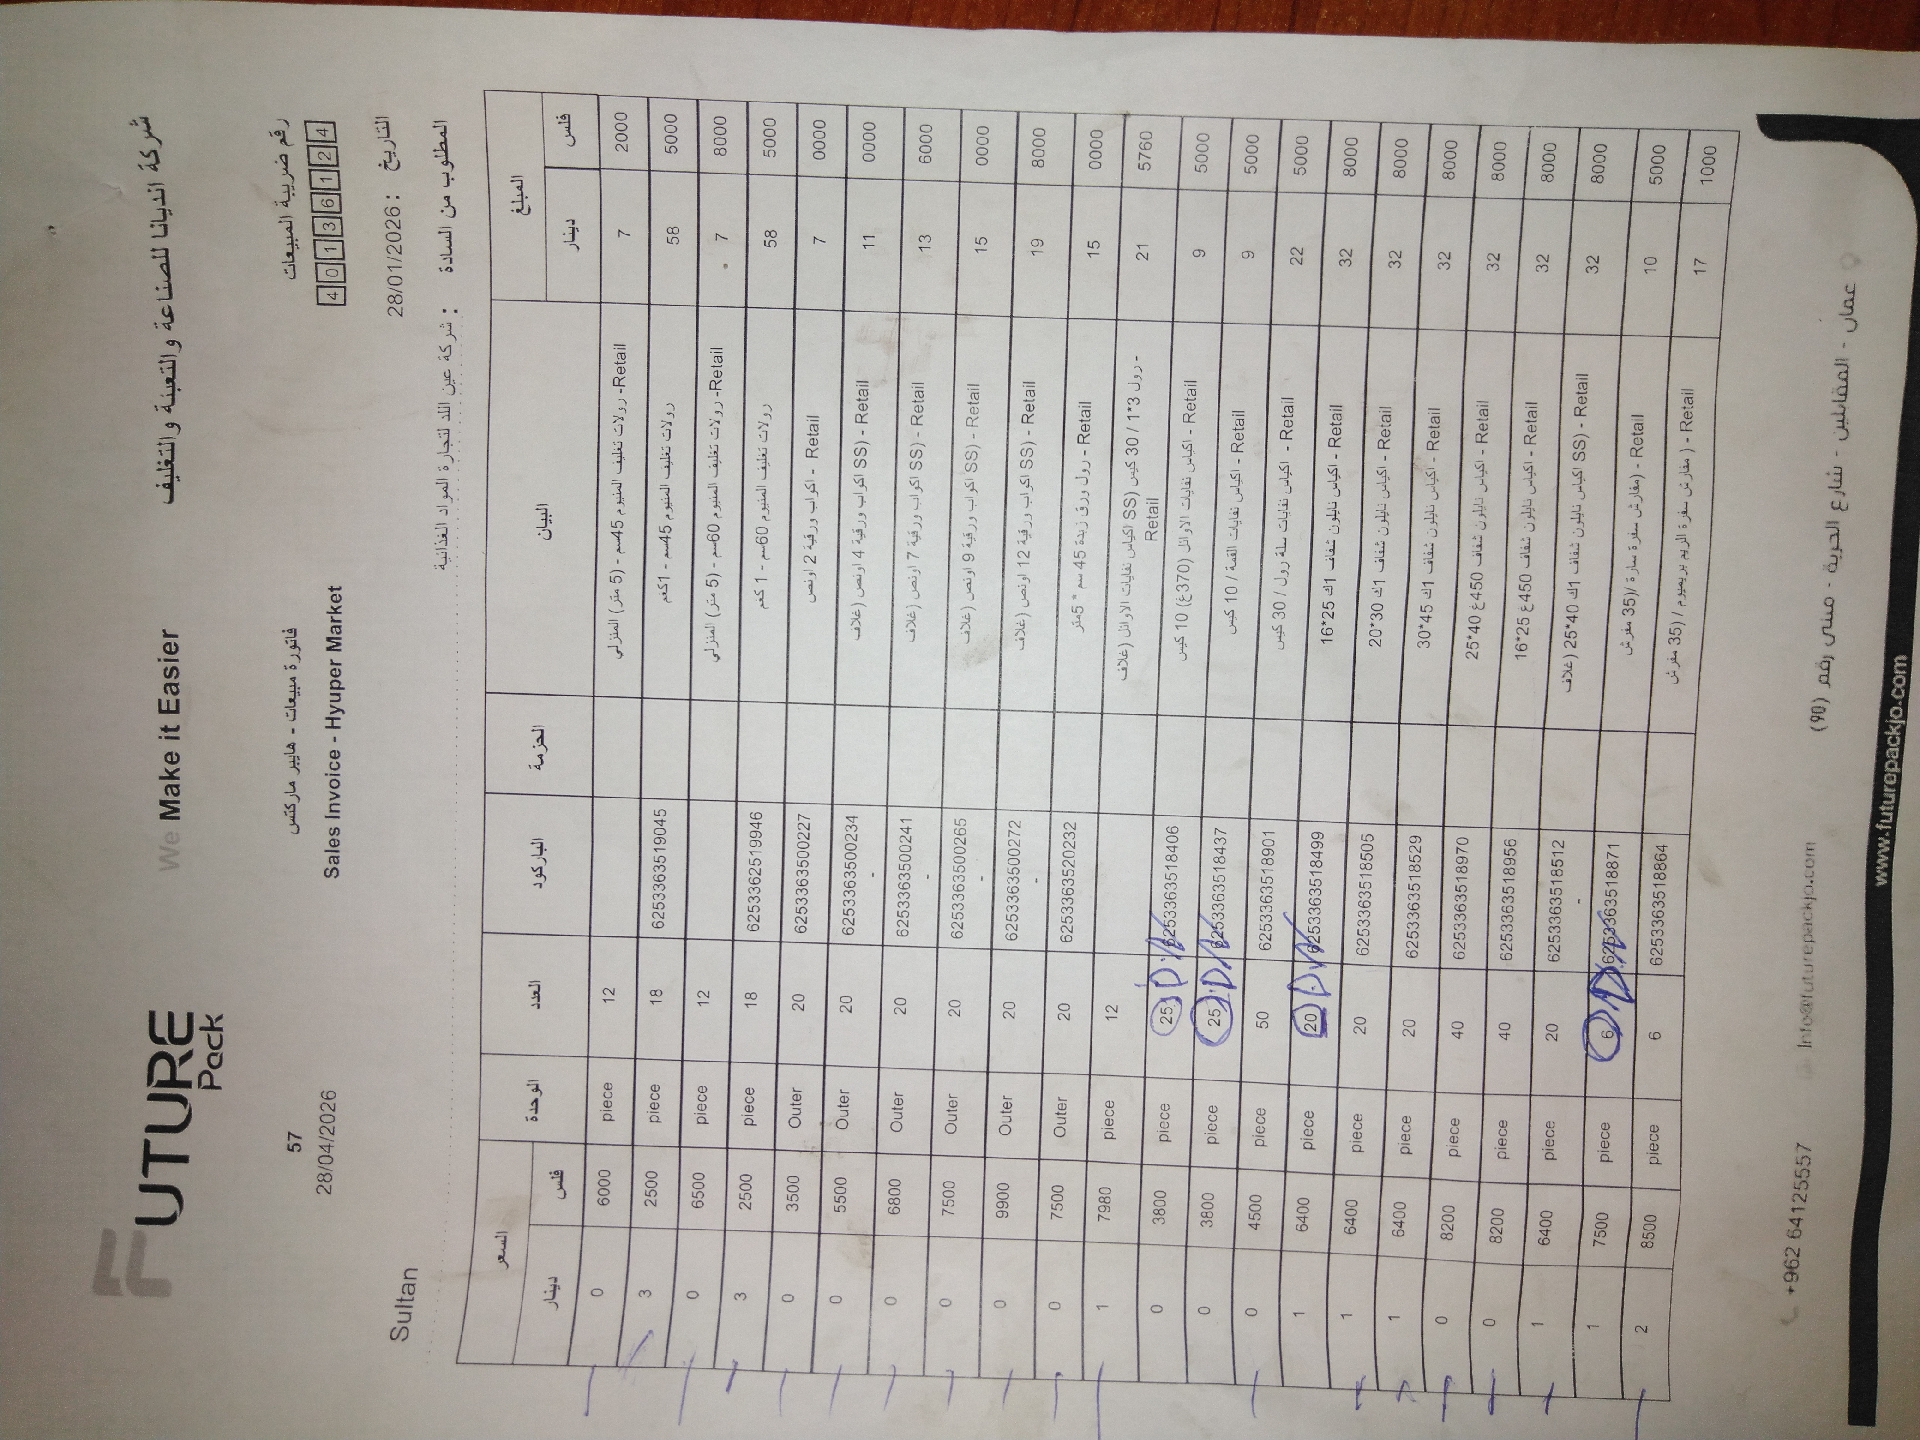 FUTURE
Pack
We Make it Easier
شركة انديانا للصناعة والتعبئة والتغليف
57
فاتورة مبيعات - هايبر ماركتس
رقم ضريبة المبيعات
28/04/2026
Sales Invoice - Hyuper Market
4 0 1 3 6 1 2 4
Sultan
التاريخ : 28/01/2026
المطلوب من السادة : شركة عين اللد لتجارة المواد الغذائية
السعر الوحدة العدد الباركود الحزمة البيان المبلغ
دينار فلس دينار فلس
0 6000 piece 12 رولات تغليف المنيوم 45سم - (5 متر) المنزلي -Retail 7 2000
3 2500 piece 18 6253363519045 رولات تغليف المنيوم 45سم - 1كغم 58 5000
0 6500 piece 12 رولات تغليف المنيوم 60سم - (5 متر) المنزلي -Retail 7 8000
3 2500 piece 18 6253362519946 رولات تغليف المنيوم 60سم - 1 كغم 58 5000
0 3500 Outer 20 6253363500227 اكواب ورقية 2 اونص - Retail 7 0000
0 5500 Outer 20 6253363500234 - اكواب ورقية 4 اونص (غلاف SS) - Retail 11 0000
0 6800 Outer 20 6253363500241 - اكواب ورقية 7 اونص (غلاف SS) - Retail 13 6000
0 7500 Outer 20 6253363500265 - اكواب ورقية 9 اونص (غلاف SS) - Retail 15 0000
0 9900 Outer 20 6253363500272 - اكواب ورقية 12 اونص (غلاف SS) - Retail 19 8000
0 7500 Outer 20 6253363520232 رول ورق زبدة 45 سم * 5متر - Retail 15 0000
1 7980 piece 12 اكياس نفايات الاوائل (غلاف SS) رول 3*1 / 30 كيس - Retail 21 5760
0 3800 piece 25 6253363518406 اكياس نفايات الاوائل (370غ) 10 كيس - Retail 9 5000
0 3800 piece 25 6253363518437 اكياس نفايات القمة / 10 كيس - Retail 9 5000
0 4500 piece 50 6253363518901 اكياس نفايات سلة رول / 30 كيس - Retail 22 5000
1 6400 piece 20 6253363518499 اكياس نايلون شفاف 1ك 25*16 - Retail 32 8000
1 6400 piece 20 6253363518505 اكياس نايلون شفاف 1ك 30*20 - Retail 32 8000
1 6400 piece 20 6253363518529 اكياس نايلون شفاف 1ك 45*30 - Retail 32 8000
0 8200 piece 40 6253363518970 اكياس نايلون شفاف 450غ 40*25 - Retail 32 8000
0 8200 piece 40 6253363518956 اكياس نايلون شفاف 450غ 25*16 - Retail 32 8000
1 6400 piece 20 6253363518512 - اكياس نايلون شفاف 1ك 40*25 (غلاف SS) - Retail 32 8000
1 7500 piece 6 6253363518871 مفارش سفرة سارة /(35 مفرش) - Retail 10 5000
2 8500 piece 6 6253363518864 مفارش سفرة الريم بريميوم / (35 مفرش ) - Retail 17 1000
+962 64125557
Info@futurepackjo.com
عمان - المقابلين - شارع الحرية - مبنى رقم (90)
www.futuropackjo.com